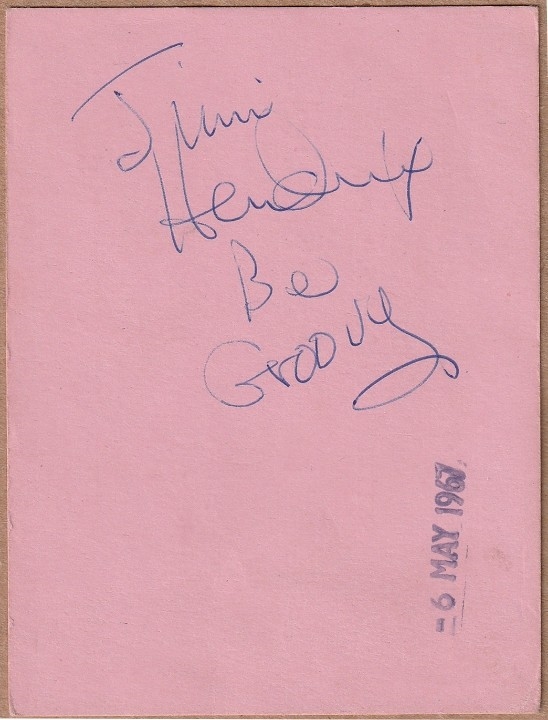 Jimi
Hendrix
Be
Groovy
-6 MAY 1967